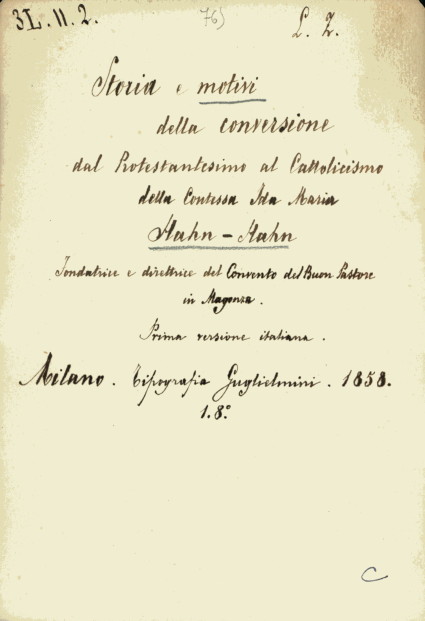 3L.11.2. 765 L. 2.
Storia e motivi
della conversione
dal Protestantesimo al Cattolicismo
della Contessa Ida Maria
Hahn - Hahn
Fondatrice e direttrice del Convento del Buon Pastore
in Magonza.
Prima versione italiana.
Milano. Tipografia Guglielmini. 1858.
1.8.°
C